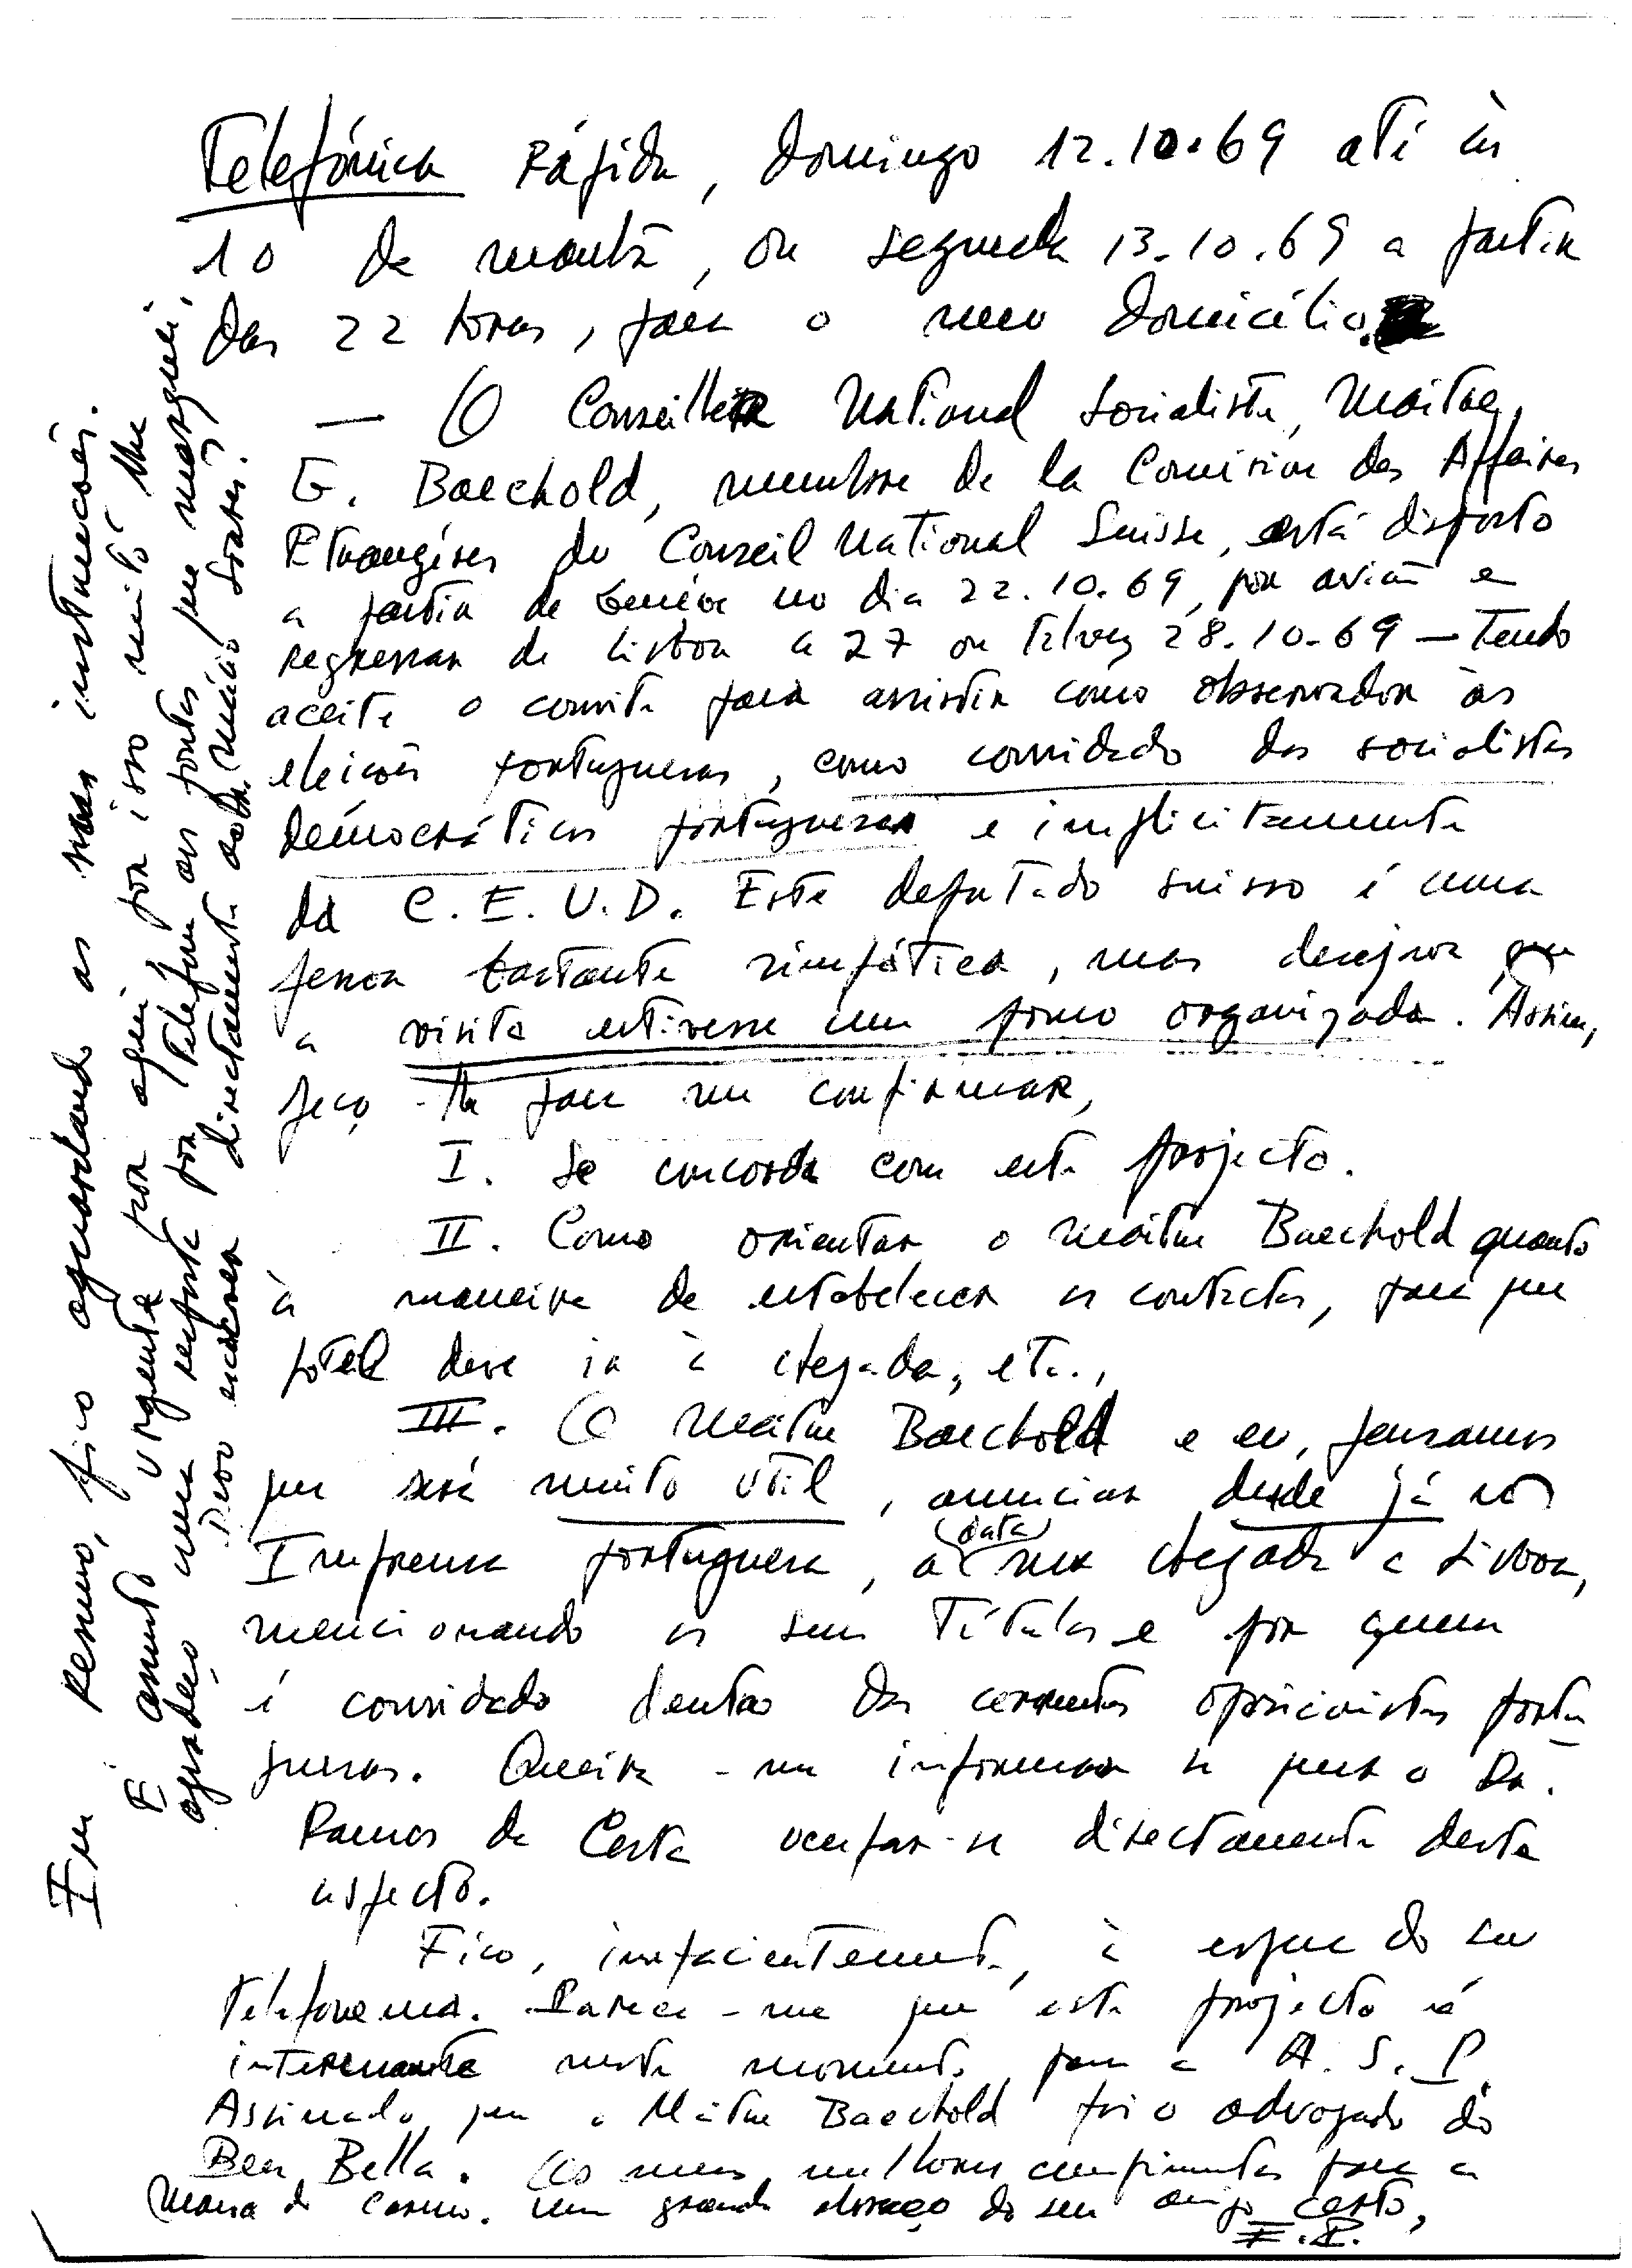 Telefónica Rápida, domingo 12.10.69 até às
10 da manhã, ou segunda 13.10.69 a partir
das 22 horas, para o meu domicílio.
— O Conseiller National Socialista, Maitre
G. Baechold, membre de la Comision des Affaires
Etrangéres du Conseil National Suisse, está disposto
a partir de Genéve no dia 22.10.69, por avião e
regressar de Lisboa a 27 ou talvez 28.10.69 — Tendo
aceite o convite para assistir como observador às
eleicões portuguesas, como convidado dos socialistas
democráticos portugueses e implicitamente
da C.E.U.D. Este deputado suisso é uma
pessoa bastante simpática, mas deseja que
a visita estivesse um pouco organizada. Assim,
peço-te para me confirmar,
I. Se concorda com este projecto.
II. Como orientar o maitre Baechold quanto
à maneira de estabelecer os contactos, para que
hotel deve ir à chegada, etc.,
III. O Maitre Baechold e eu, pensamos
que será muito útil, anunciar desde já na
Imprensa portuguesa, a (data) sua chegada a Lisboa,
mencionando os seus Títulos e por quem
é convidado dentro das correntes oposicionistas portu
guesas. Queira-me informar se quer o Dr.
Ramos da Costa ocupar-se directamente deste
aspecto.
Fico, impacientemente, à espera do seu
Telefonema. Parece-me que este projecto é
interessante neste momento para a A.S.P.
Assinado, que o Maitre Baechold foi o advogado do
Ben Bella. Os meus melhores cumprimentos para a
Maria do Carmo. Um grande abraço do seu amigo certo,
F.P.
Em resumo, fico aguardando as suas instrucões.
É assunto urgente por aqui por isso muito lhe
agradeço uma resposta por telefone aos pontos que marquei.
Devo escrever directamente ao Dr. Mário Soares?